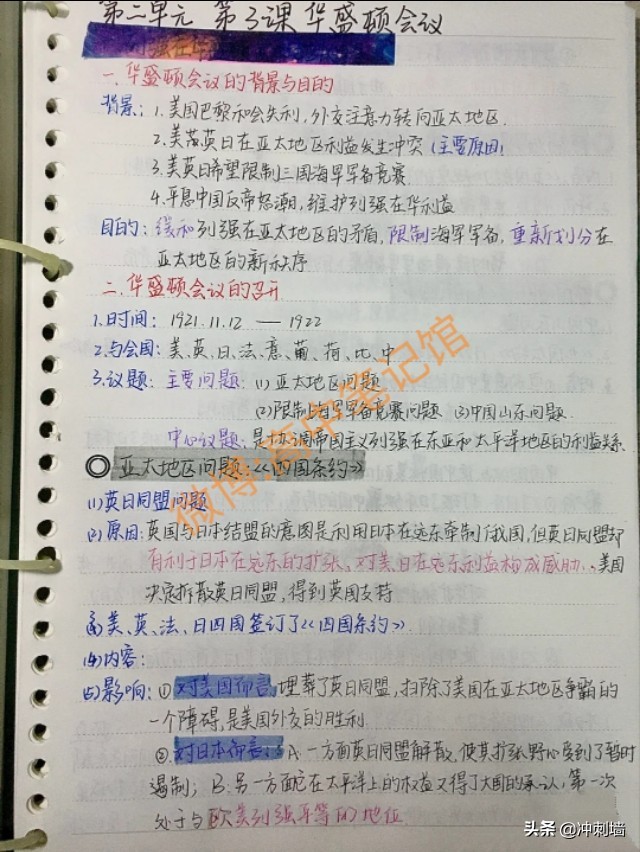 第二单元 第3课 华盛顿会议
强在华
一.华盛顿会议的背景与目的
背景：1.美国巴黎和会失利，外交注意力转向亚太地区.
2.美英日在亚太地区利益发生冲突（主要原因）
3.美英日希望限制三国海军军备竞赛
4.平息中国反帝怒潮，维护列强在华利益
目的：缓和列强在亚太地区的矛盾，限制海军军备，重新划分在
亚太地区的新秩序
二.华盛顿会议的召开
1.时间：1921.11.12 — 1922
2.与会国：美、英、日、法、意、葡、荷、比、中
3.议题：主要问题：(1)亚太地区问题
(2)限制海军军备竞赛问题 (3)中国山东问题.
中心议题：是协调帝国主义列强在东亚和太平洋地区的利益关系.
◎亚太地区问题：《四国条约》
(1)英日同盟问题
(2)原因：英国与日本结盟的意图是利用日本在远东牵制俄国，但英日同盟却
有利于日本在远东的扩张，对美日在远东利益构成威胁..美国
决定拆散英日同盟，得到英国支持
(3)美、英、法、日四国签订了《四国条约》.
(4)内容：
(5)影响：①对美国而言，埋葬了英日同盟，扫除了美国在亚太地区争霸的
一个障碍，是美国外交的胜利.
②对日本而言：A.一方面英日同盟解散，使其扩张野心受到了暂时
遏制；B.另一方面它在太平洋上的权益又得了大国的承认，第一次
处于与欧美列强平等的地位.
微博:高中笔记馆
头条 @冲刺墙